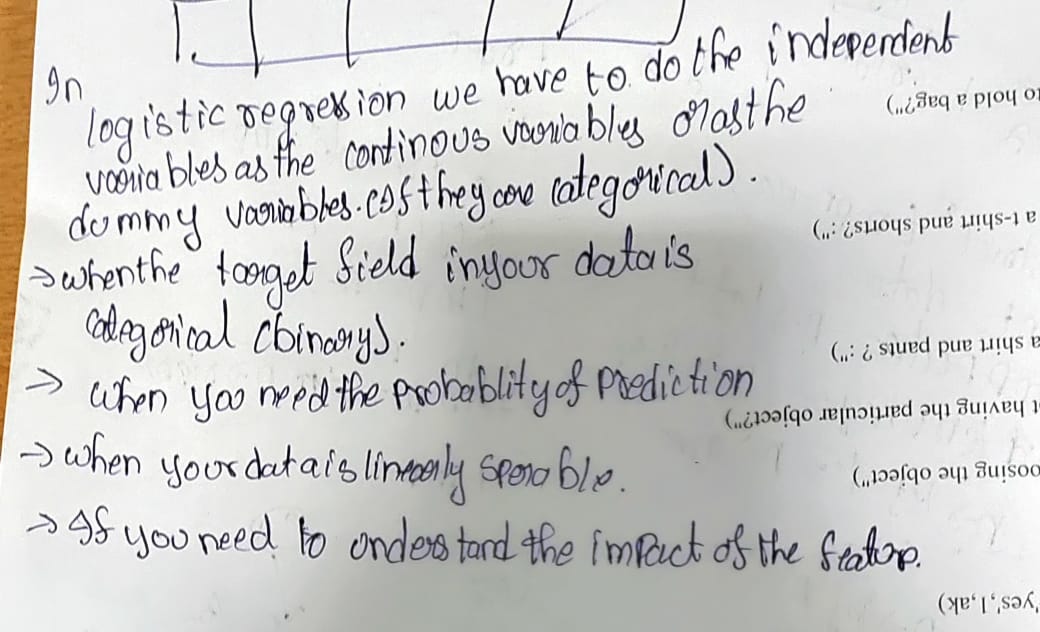 In
logistic regression we have to do the independent
variables as the continous variables or as the
dummy variables. (If they are categorical).
→ when the target field in your data is
categorical (binary).
→ when you need the probablity of prediction
→ when your data is linearly sperable.
→ If you need to understand the impact of the feature.
to hold a bag?")
a t-shirt and shorts?:")
a shirt and pants ? :")
t having the particular object?")
oosing the object")
'yes',1,ak)